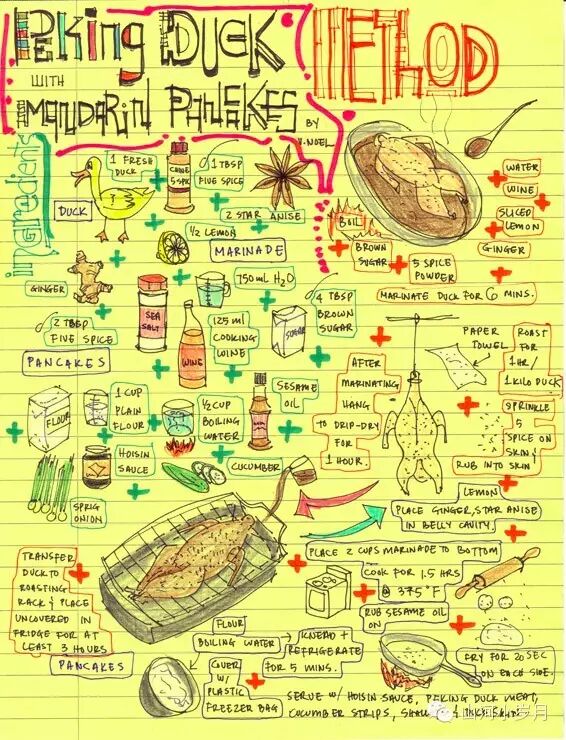 PEKING DUCK
WITH
MANDARIN PANCAKES
BY
V.NOEL
METHOD
ingredients
1 FRESH
DUCK
DUCK
5 SPK
1 TBSP
FIVE SPICE
2 STAR ANISE
1/2 LEMON
MARINADE
GINGER
SEA
SALT
750 mL H2O
2 TBSP
FIVE SPICE
125 ml
COOKING
WINE
WINE
SUGAR
4 TBSP
BROWN
SUGAR
PANCAKES
FLOUR
1 CUP
PLAIN
FLOUR
1/2 CUP
BOILING
WATER
SESAME
OIL
HOISIN
SAUCE
CUCUMBER
SPRIG
ONION
WATER
WINE
SLICED
LEMON
GINGER
BOIL
BROWN
SUGAR
5 SPICE
POWDER
MARINATE DUCK FOR 6 MINS.
AFTER
MARINATING
HANG
TO DRIP-DRY
FOR
1 HOUR.
PAPER
TOWEL
ROAST
FOR
1 HR/
1 KILO DUCK
SPRINKLE
5
SPICE ON
SKIN &
RUB INTO SKIN
LEMON
PLACE GINGER, STAR ANISE
IN BELLY CAVITY.
TRANSFER
DUCK TO
ROASTING
RACK & PLACE
UNCOVERED IN
FRIDGE FOR AT
LEAST 3 HOURS
PLACE 2 CUPS MARINADE TO BOTTOM
COOK FOR 1.5 HRS
@ 375°F
RUB SESAME OIL
ON
PANCAKES
FLOUR
BOILING WATER
KNEAD +
REFRIGERATE
FOR 5 MINS.
COVER
W/
PLASTIC
FREEZER BAG
FRY FOR 20 SEC
ON EACH SIDE.
SERVE W/ HOISIN SAUCE, PEKING DUCK MEAT,
CUCUMBER STRIPS,
山河小岁月